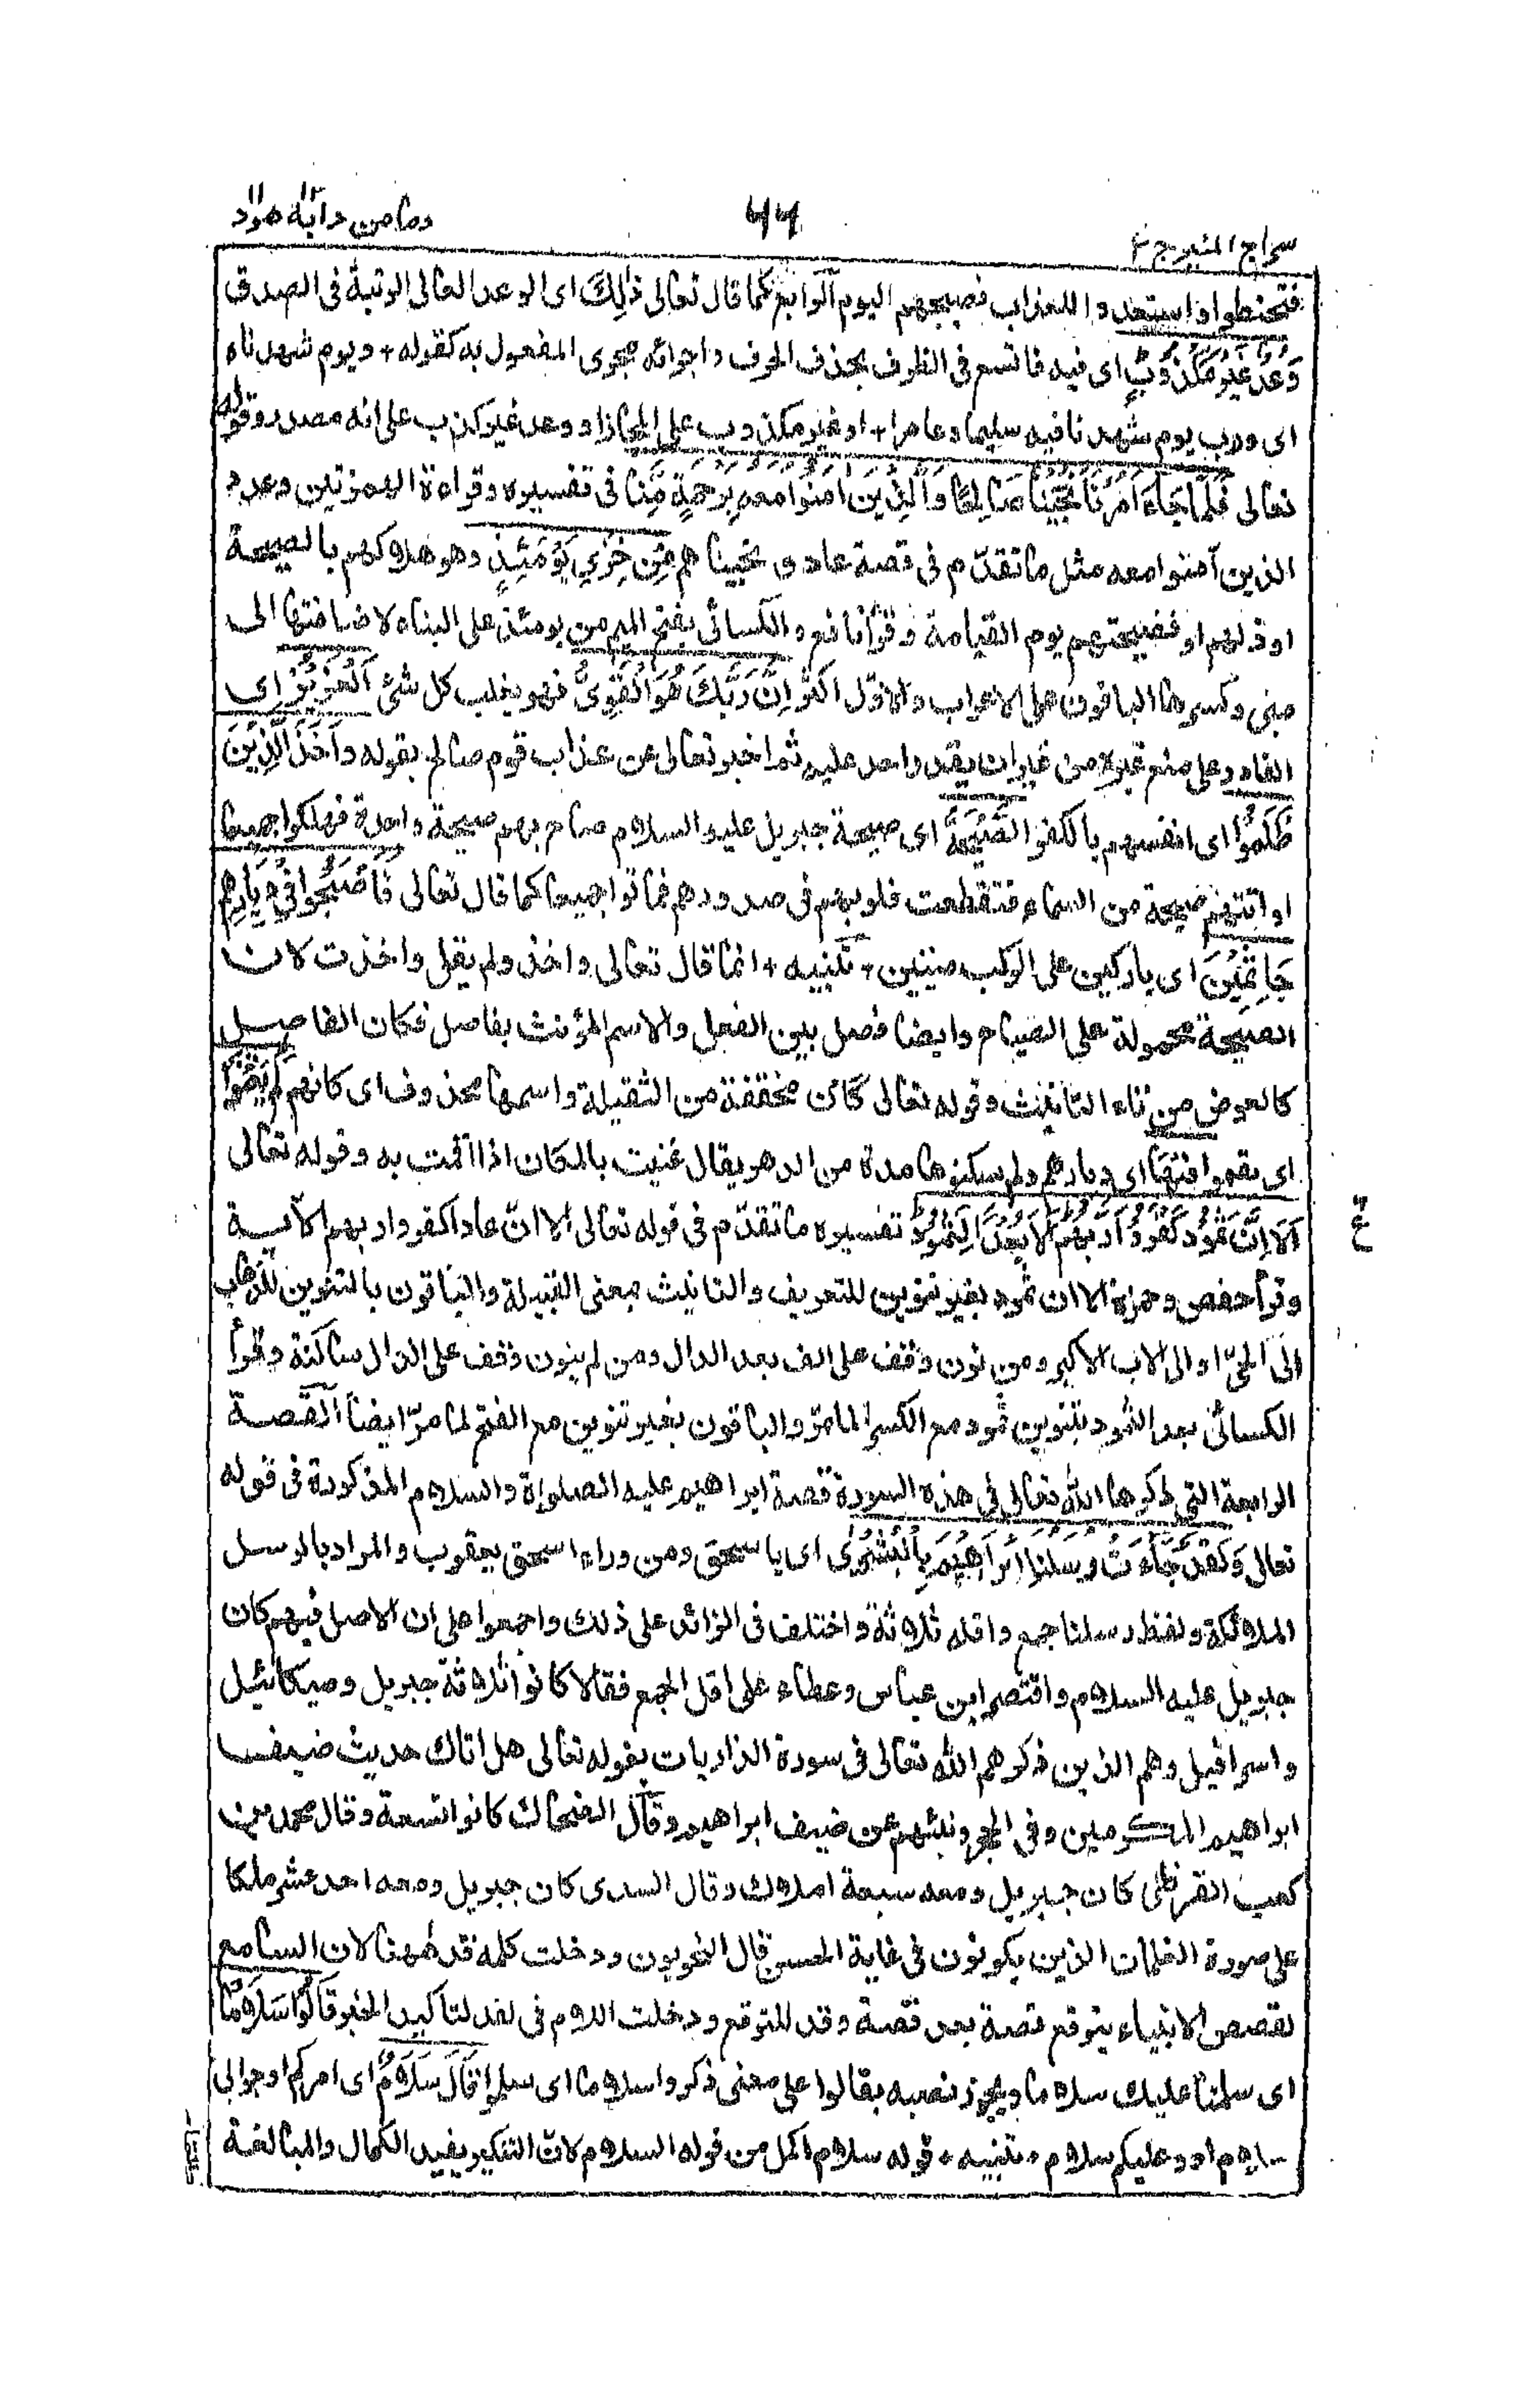 سراج المنير ج ٢
٦٦
ومامن دابة ١٢ هود ١١
فتحنطوا واستعدوا للعذاب فصبحهم اليوم الرابع كما قال تعالى ذٰلِكَ اى الوعد العالى الرتبة فى الصدق
وَعْدٌ غَيْرُ مَكْذُوْبٍ اى فيه فاتسع فى الظرف بحذف الحرف واجرائه مجرى المفعول به كقوله + ويوم شهدناه
اى ورب يوم شهدنا فيه سليما وعامرا + او غير مكذوب على المجاز او وعد غير كذب على انه مصدر وقوله
تعالى فَلَمَّا جَاءَ اَمْرُنَا نَجَّيْنَا صَالِحًا وَّالَّذِيْنَ اٰمَنُوْا مَعَهٗ بِرَحْمَةٍ مِّنَّا فى تفسيره وقراءة الهمزتين وعدد
الذين آمنوا معه مثل ما تقدّم فى قصة عاد و نجيناهم مِنْ خِزْيِ يَوْمَئِذٍ وهو هلاكهم بالصيحة
او ذلهم او فضيحتهم يوم القيامة وقرأ نافع والكسائى بفتح الميم من يومئذ على البناء لاضافتها الى
مبنى وكسرها الباقون على الاعراب والاوّل اكثر اِنَّ رَبَّكَ هُوَ الْقَوِىُّ فهو يغلب كل شئ اَلْعَزِيْزُ اى
القادر على منع غيره من غير ان يقدر احد عليه ثم اخبر تعالى عن عذاب قوم صالح بقوله وَاَخَذَ الَّذِيْنَ
ظَلَمُوْا اى انفسهم بالكفر الصَّيْحَةُ اى صيحة جبريل عليه السلام صاح بهم صيحة واحدة فهلكوا جميعا
او اتتهم صيحة من السماء فتقطعت قلوبهم فى صدورهم فماتوا جميعا كما قال تعالى فَاَصْبَحُوْا فِىْ دِيَارِهِمْ
جَاثِمِيْنَ اى باركين على الركب ميتين + تنبيه + انما قال تعالى واخذ ولم يقل واخذت لان
الصيحة محمولة على الصياح وايضا فصل بين الفعل والاسم المؤنث بفاصل فكان الفاصل
كالعوض من تاء التانيث وقوله تعالى كَاَنْ مخففة من الثقيلة واسمها محذوف اى كانهم لَمْ يَغْنَوْا
اى يقيموا فِيْهَا اى ديارهم ولم يسكنوها مدة من الدهر يقال غنيت بالمكان اذا اقمت به وقوله تعالى
اَلَا اِنَّ ثَمُوْدَ كَفَرُوْا رَبَّهُمْ اَلَا بُعْدًا لِّثَمُوْدَ تفسيره ما تقدّم فى قوله تعالى الا انّ عادا كفروا ربهم الآية
وقرأ حفص وحمزة الا ان ثمود بغير تنوين للتعريف والتانيث بمعنى القبيلة والباقون بالتنوين للذهاب
الى الحىّ او الى الاب الاكبر ومن نون وقف على الف بعد الدال ومن لم ينون وقف على الدال ساكنة وقرأ
الكسائى بعدا لثمود بتنوين ثمود مع الكسر لما مرّ والباقون بغير تنوين مع الفتح لما مرّ ايضا القصة
الرابعة التى ذكرها الله تعالى فى هذه السورة قصة ابراهيم عليه الصلوة والسلام المذكورة فى قوله
تعالى وَلَقَدْ جَاءَتْ رُسُلُنَا اِبْرَاهِيْمَ بِالْبُشْرٰى اى باسحق ومن وراء اسحق يعقوب والمراد بالرسل
الملائكة ولفظ رسلنا جمع واقله ثلاثة واختلف فى الزائد على ذلك واجمعوا على ان الاصل فيهم كان
جبريل عليه السلام واقتصر ابن عباس وعطاء على اقل الجمع فقالا كانوا ثلاثة جبريل وميكائيل
واسرافيل وهم الذين ذكرهم الله تعالى فى سورة الذاريات بقوله تعالى هل اتاك حديث ضيف
ابراهيم المكرمين وفى الحجر ونبئهم عن ضيف ابراهيم وقال الضحاك كانوا تسعة وقال محمد بن
كعب القرظى كان جبريل ومعه سبعة املاك وقال السدى كان جبريل ومعه احد عشر ملكا
على صورة الغلمان الذين يكونون فى غاية الحسن قال النحويون ودخلت كلمه قد ههنا لان السامع
لقصص الانبياء يتوقع قصة بعد قصة وقد للتوقع ودخلت اللام فى لقد لتاكيد الخبر قَالُوْا سَلَامًا
اى سلمنا عليك سلاما ويجوز نصبه بقالوا على معنى ذكروا سلاما اى سلموا قَالَ سَلَامٌ اى امركم او جوابى
سلام او وعليكم سلام + تنبيه + قوله سلام اكمل من قوله السلام لانّ التنكير يفيد الكمال والمبالغة
ع